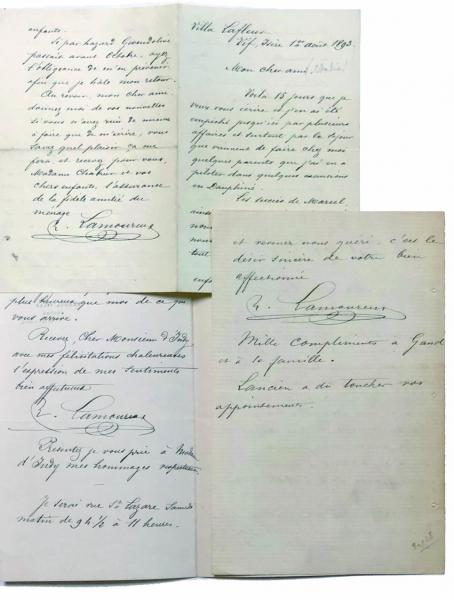 enfants.
Si par hazard Gwendoline
passait avant Octobre, ayez
l'obligeance de m'en prévenir
afin que je hâte mon retour.
Au revoir, mon cher ami
donnez moi de vos nouvelles
si vous n'avez rien de mieux
à faire que de m'écrire, vous
savez quel plaisir ça me
fera et recevez pour vous,
Madame Chabrier et vos
chers enfants, l'assurance
de la fidèle amitié du
ménage
C. Lamoureux
Villa Lafleur
Vif, Isère 1er août 1893.
Mon cher ami,
Voilà 15 jours que je
veux vous écrire et j'en ai été
empêché jusqu'ici par plusieurs
affaires et surtout par le séjour
que viennent de faire chez moi
quelques parents que j'ai eu à
piloter dans quelques excursions
en Dauphiné.
Les succès de Marcel
tout
enf
plus heureux que moi de ce qui
vous arrive.
Recevez, Cher Monsieur d'Indy
avec mes félicitations chaleureuses
l'expression de mes sentiments
bien affectueux
C. Lamoureux
Présentez je vous prie à
d'Indy mes hommages
Je serai rue St Lazare Samedi
matin de 9h 1/2 à 11 heures.
et revenez nous guéri, c'est le
désir sincère de votre bien
affectionné
C. Lamoureux
Mille compliments à
et à sa famille.
Lancien a dû toucher vos
appointements.